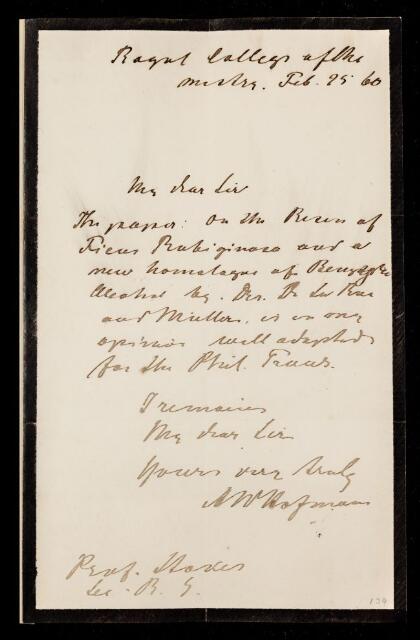 Royal College of Che
mistry. Feb. 25 60
My dear Sir
The paper: On the Resin of
Ficus Rubiginosa and a
new homologue of Benzylic
Alcohol by Drs. De La Rue
and Müller, is in my
opinion well adapted
for the Phil. Trans.
I remain
My dear Sir
Yours very truly
AW Hofmann
Prof. Stokes
Sec. R. S.
134